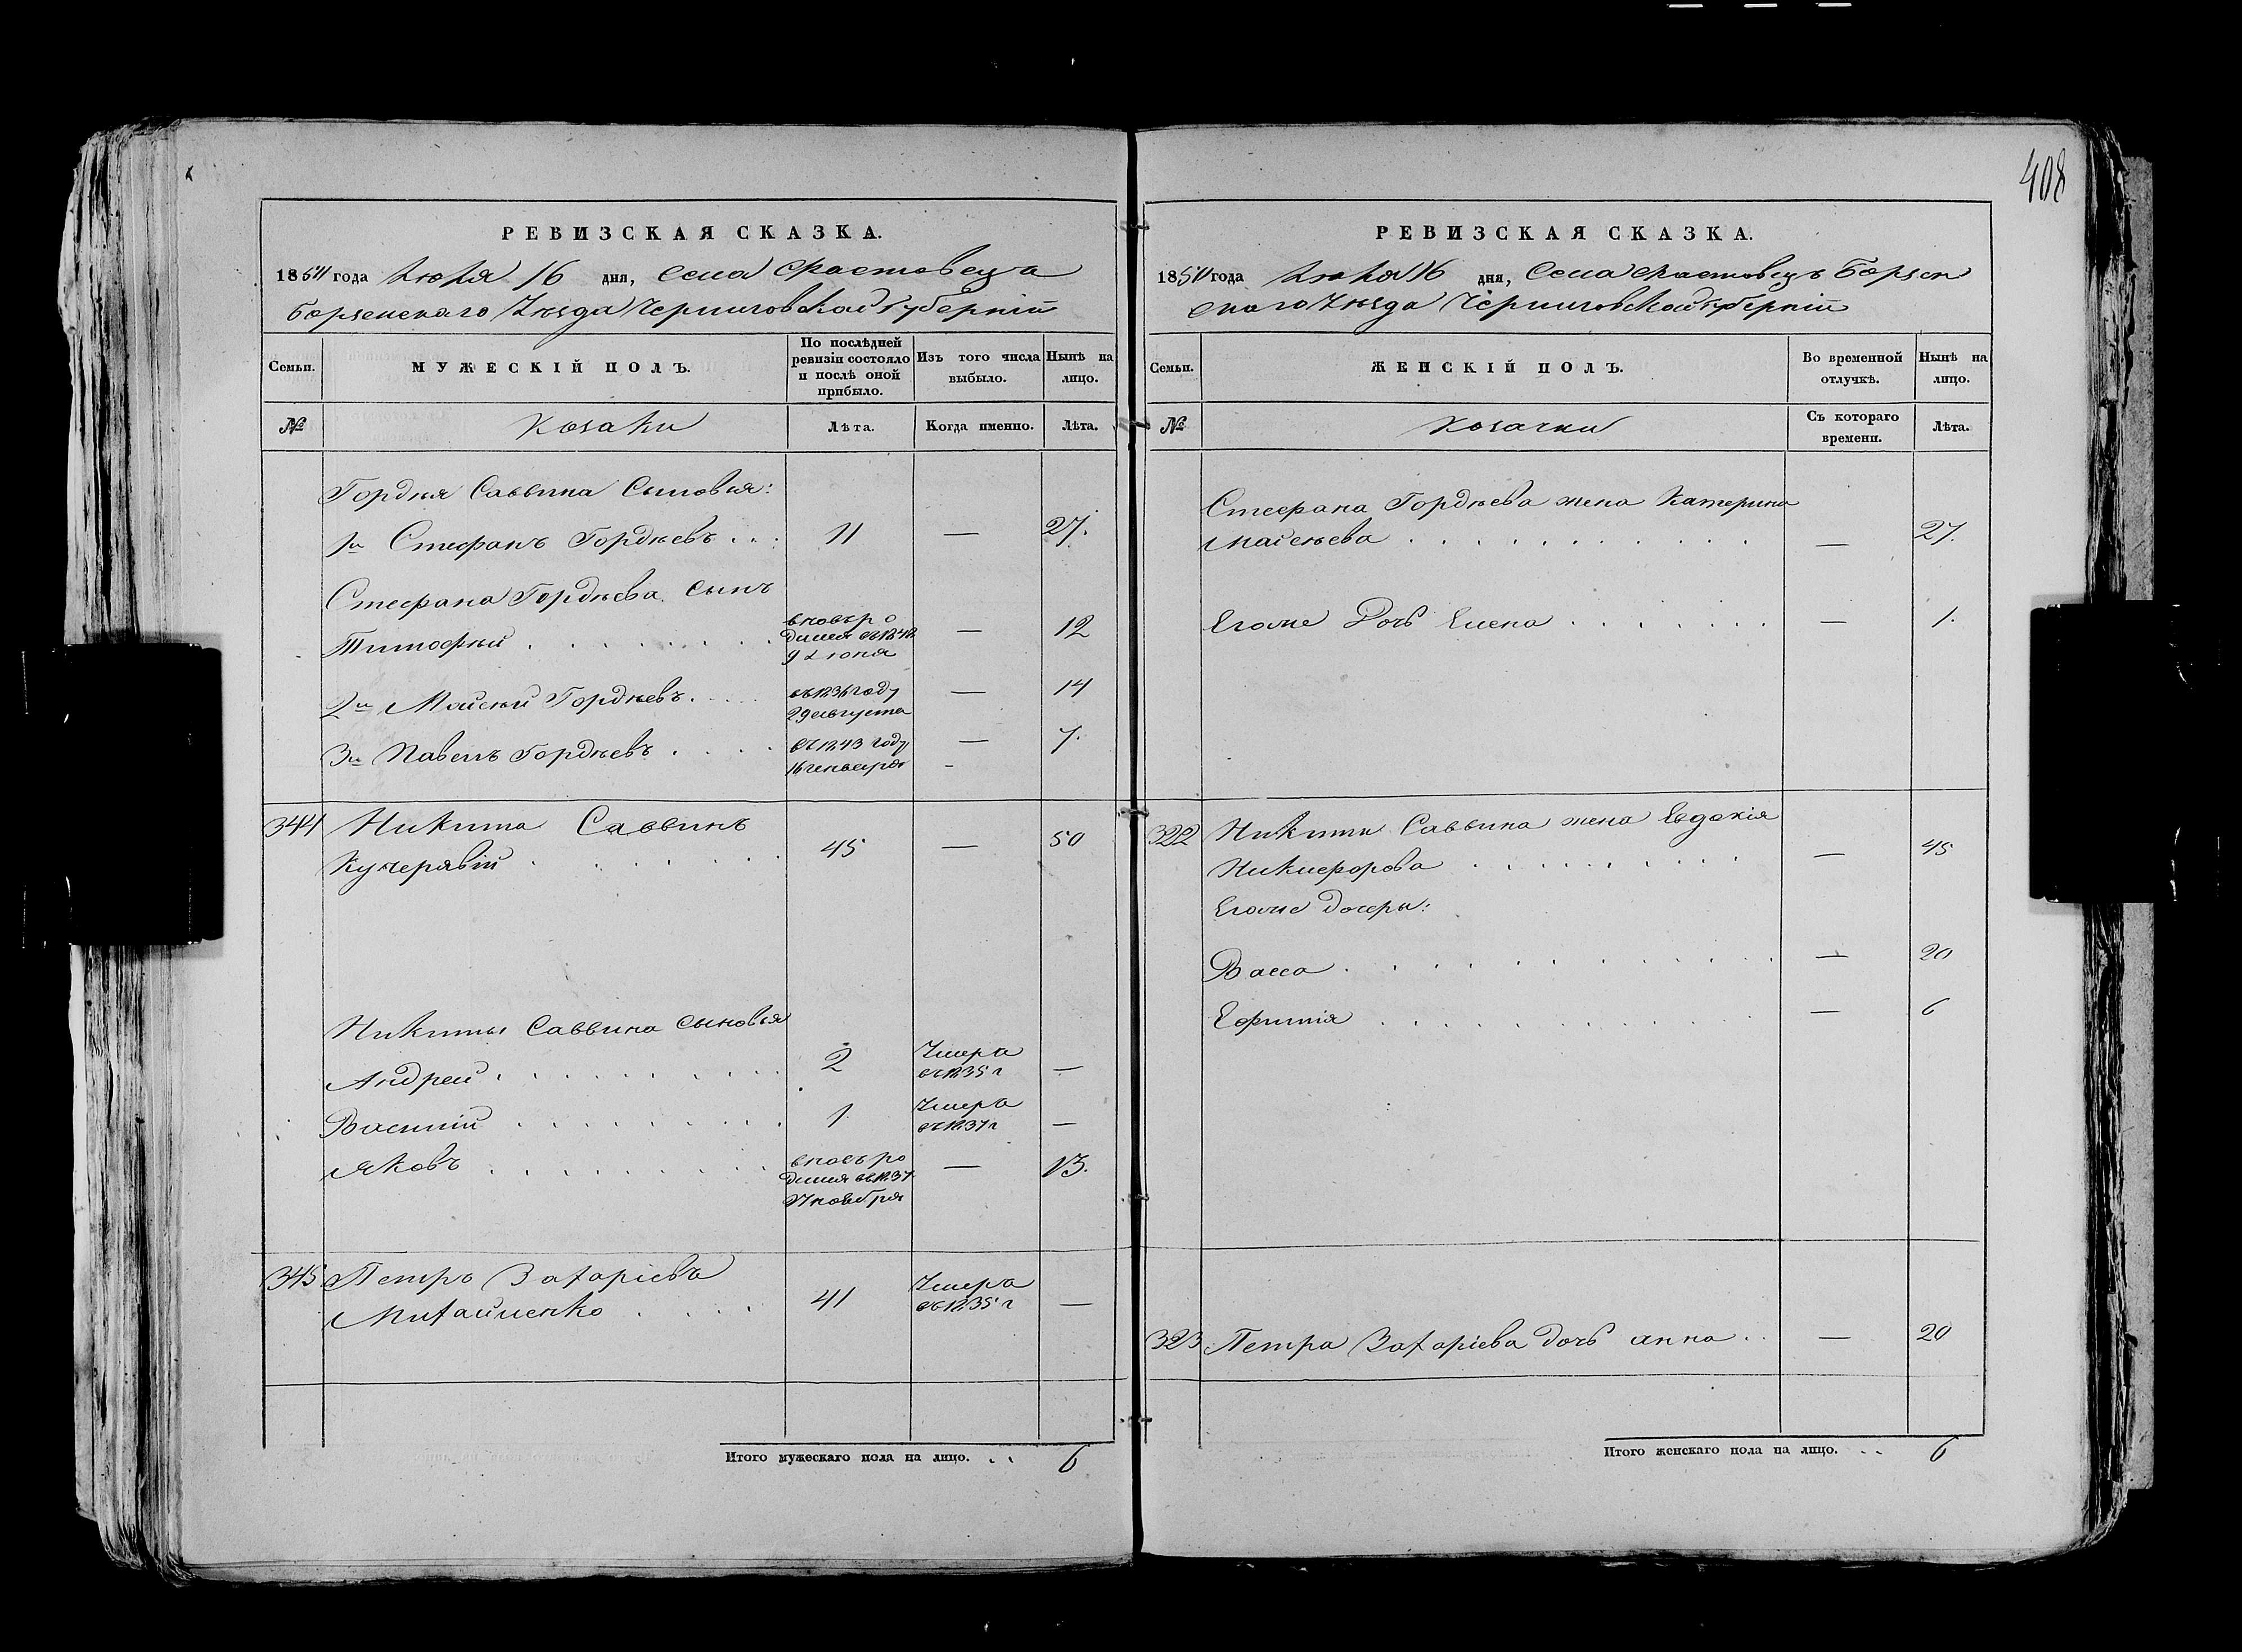 408
РЕВИЗСКАЯ СКАЗКА.
1850 года Июля 16 дня, Села Фастовеца
Борзенскаго Уѣзда Черниговской Губерніи
Семьи.
МУЖЕСКІЙ ПОЛЪ.
По послѣдней ревизіи состояло и послѣ оной прибыло.
Изъ того числа выбыло.
Нынѣ на лицо.
№
Козаки
Лѣта.
Когда именно.
Лѣта.
Гордѣя Саввина Сыновья:
1й Стефанъ Гордѣевъ . . . 11 — 27.
Стефана Гордѣева сынъ
Тимофѣй . . . вновь ро
дился въ 1848
9 Июня — 12
2й Мойсей Гордѣевъ . . . въ 1836 году
29 августа — 14
3й Павелъ Гордѣевъ . . . въ 1843 году
16 генваря — 7.
344 Никита Саввинъ
Кучерявій . . . 45 — 50
Никиты Саввина сыновья
Андрей . . . 2 Умеръ
въ 1835 г —
Василій . . . 1 Умеръ
въ 1837 г —
Яковъ . . . вновь ро
дился въ 1837
ноября — 13.
345 Петръ Захаріевъ
Михайленко . . . 41 Умеръ
въ 1835 г —
Итого мужескаго пола на лицо. . . 6
РЕВИЗСКАЯ СКАЗКА.
1850 года Июля 16 дня, Села Фастовецъ Борзен
скаго Уѣзда Черниговской Губерніи
Семьи.
ЖЕНСКІЙ ПОЛЪ.
Во временной отлучкѣ.
Нынѣ на лицо.
№
Козачки
Съ котораго времени.
Лѣта.
Стефана Гордѣева жена Катерина
Мойсѣева . . . — 27.
Егоже Дочь Елена . . . — 1.
322 Никиты Саввина жена Евдокія
Никифорова . . . — 45
Егоже дочери:
Васса . . . — 20
Ефимія . . . — 6
323 Петра Захаріева дочь анна . . — 20
Итого женскаго пола на лицо. . . 6